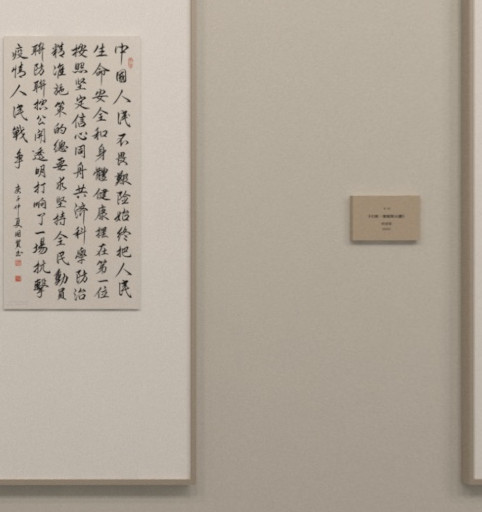 中國人民不畏艱险始终把人民
生命安全和身體健康摆在第一位
按照坚定信心同舟共濟科學防治
精准施策的總要求坚持全民動員
联防联控公開透明打响了一場抗擊
疫情人民戰争
庚子仲夏